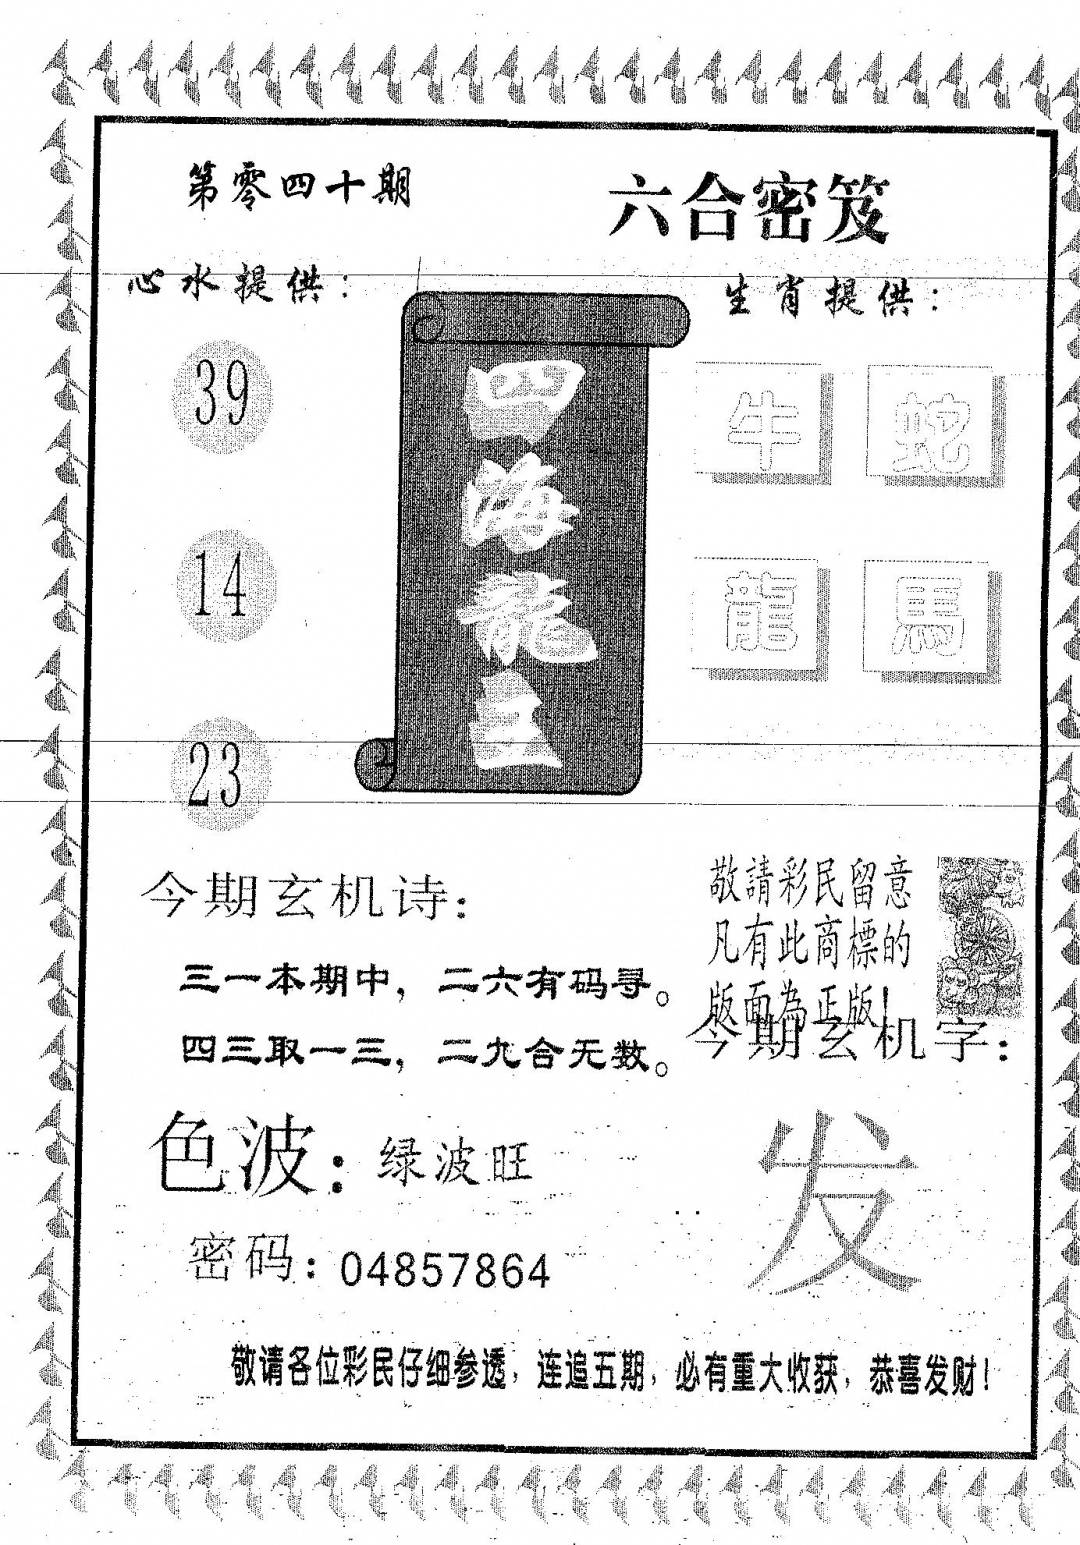 第零四十期
六合密笈
心水提供：
生肖提供：
39
14
23
四海龍王
牛 蛇
龍 馬
今期玄机诗：
三一本期中，二六有码寻。
四三取一三，二九合无数。
敬請彩民留意
凡有此商標的
版面為正版！
今期玄机字：
发
色波：绿波旺
密码：04857864
敬请各位彩民仔细参透，连追五期，必有重大收获，恭喜发财！